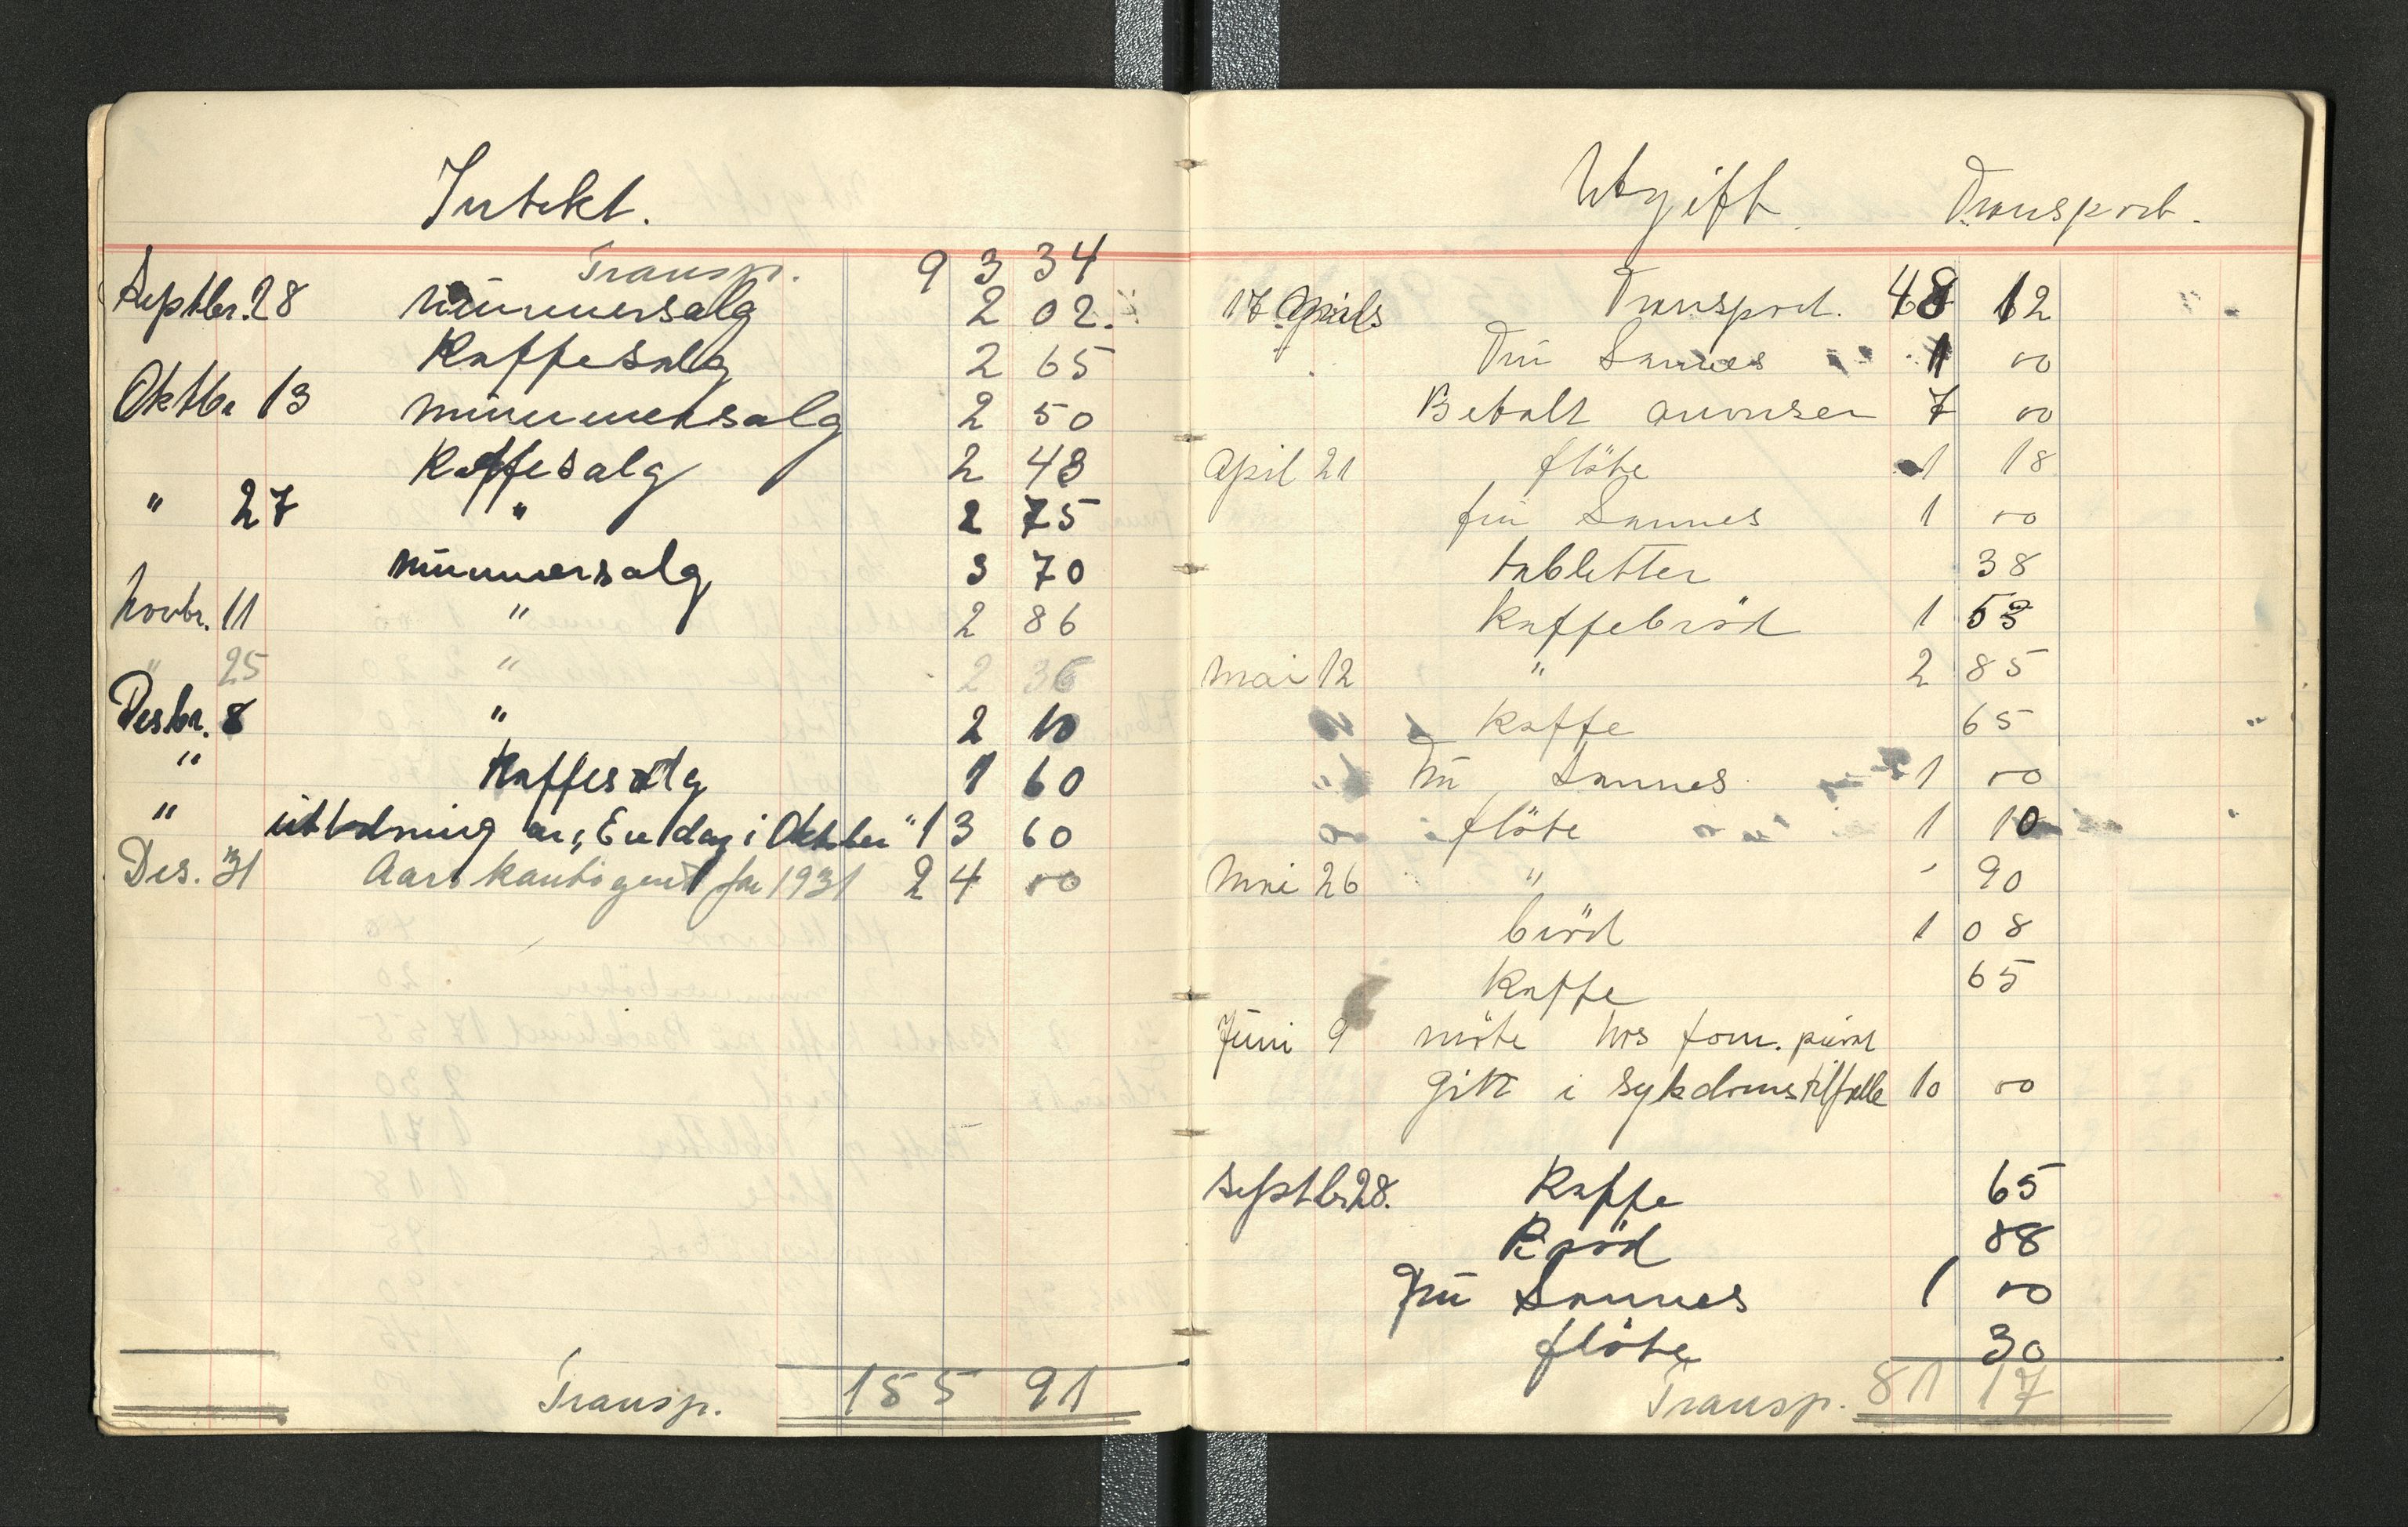 Intekt.
Transp. 93 34
Septbr. 28 nummersalg 2 02.
Kaffesalg 2 65
Oktbr 13 nummersalg 2 50
Kaffesalg 2 48
" 27 " 2 75
nummersalg 3 70
Novbr. 11 " 2 86
" 25 " 2 36
Desbr. 8 " 2 10
" Kaffesalg 1 60
" utlodning av "En dag i Oktober" 13 60
Des. 31 Aars kontigent for 1931 24 00
Transp. 155 91
Utgift. Transport.
17 April Transport. 48 12
Fru Sannes 1 00
Betalt anonser 7 00
April 21 flöte 1 18
fru Sannes 1 00
tabletter 38
Kaffebröd 1 53
Mai 12 " 2 85
Kaffe 65
" Fru Sannes 1 00
flöte 1 10
Mai 26 " 90
bröd 1 08
Kaffe 65
Juni 9 möte hos form. privat
Gitt i sykdomstilfælle 10 00
Septbr 28. Kaffe 65
Bröd 88
Fru Sannes 1 00
flöte 30
Transp. 81 17